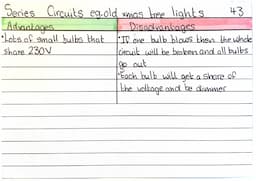 Series Circuits eg. old xmas tree lights 43
Advantages
Disadvantages
• Lots of small bulbs that
share 230V
• If one bulb blows then the whole
circuit will be broken and all bulbs
go out
• Each bulb will get a share of
the voltage and be dimmer